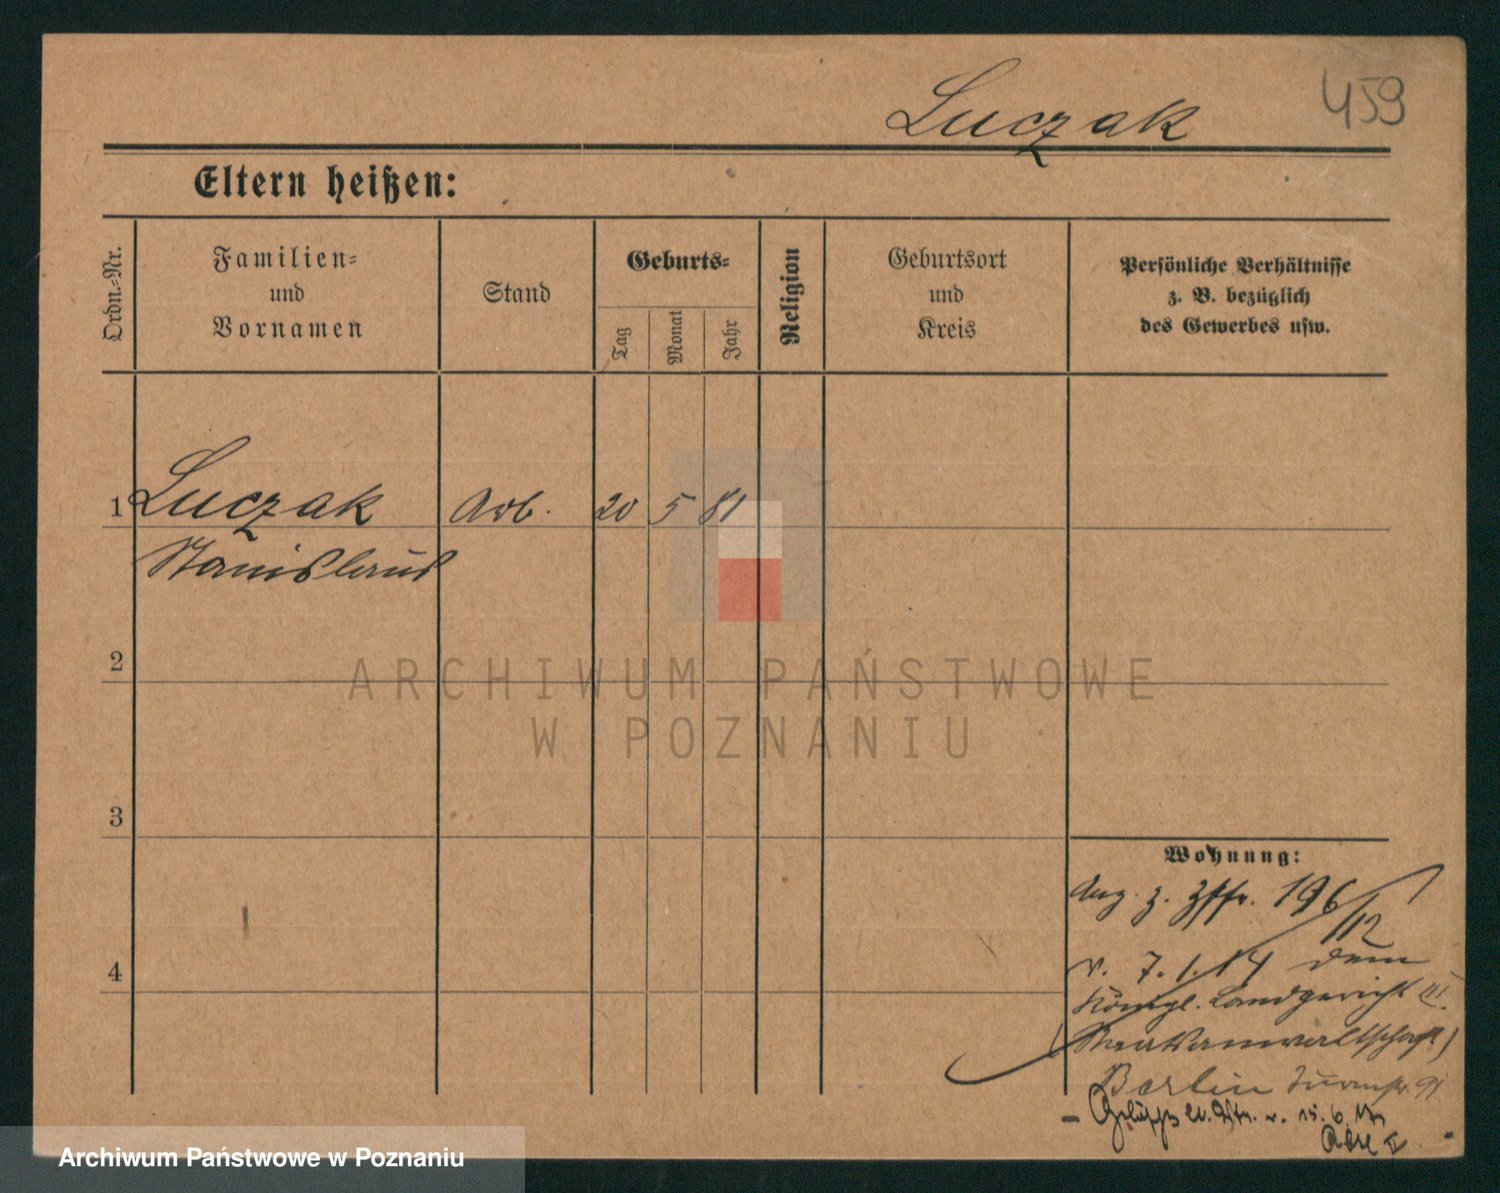 Luczak 459
Eltern heißen:
Ordn.-Nr.
Familien-
und
Vornamen
Stand
Geburts-
Tag
Monat
Jahr
Religion
Geburtsort
und
Kreis
Persönliche Verhältnisse
z. B. bezüglich
des Gewerbes usw.
1 Luczak Arb. 20 5 81
Stanislaus
2
ARCHIWUM PAŃSTWOWE
W POZNANIU
3
Wohnung:
Anz. z. 196/12
v. 7.1.14 dem
Königl. Landgericht III.
(Staatsanwaltschaft)
Berlin Turmstr. 91
4
Gelöscht v. 15.6.
Archiwum Państwowe w Poznaniu